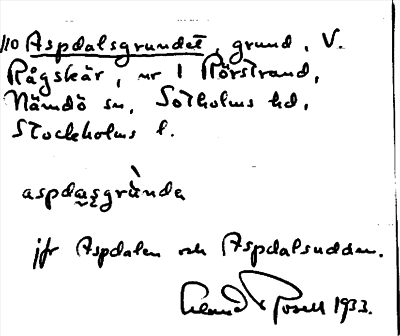 1/10 Aspdalsgrundet, grund, V.
Rågskär, nr 1 Rörstrand,
Nämdö sn, Sotholms hd,
Stockholms l.
aspda̰s̰grùndə
jfr Aspdalen och Aspdalsudden.
Rosell 1933.